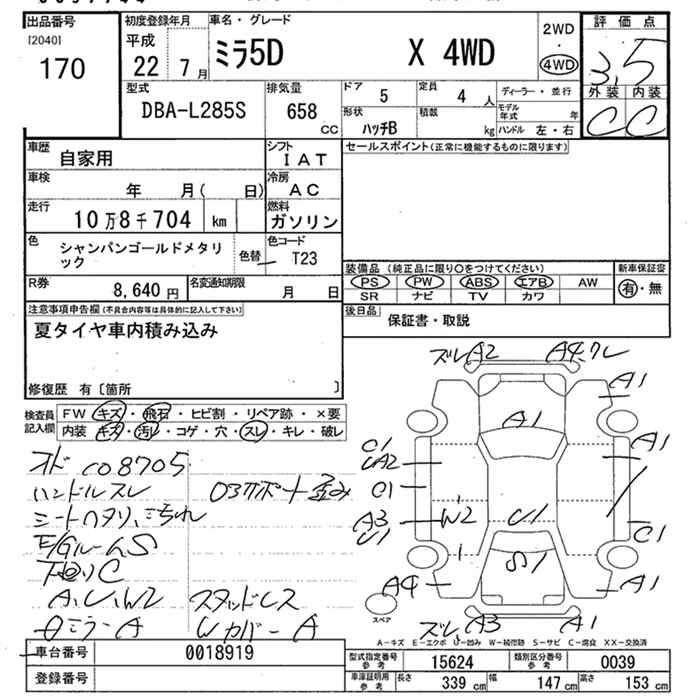 出品番号
[2040]
170
初度登録年月
平成
22 7月
車名・グレード
ミラ5D X 4WD
2WD
4WD
評価点
3.5
外装 内装
C C
型式
DBA-L285S
排気量
658 cc
ドア 5
定員 4 人
ディーラー・並行
形状 ハッチB
積載 kg
モデル年式 年
ハンドル 左・右
車歴 自家用
シフト IAT
セールスポイント(正常に機能するものに限ります)
車検 年 月( 日)
冷房 AC
走行 10万8千704 km
燃料 ガソリン
色 シャンパンゴールドメタリック
色替
色コード T23
装備品 (純正品に限り○をつけてください)
新車保証書
PS PW ABS エアB AW
有・無
SR ナビ TV カワ
R券 8,640円
名変通知期限 月 日
後日品 保証書・取説
注意事項申告欄(不具合内容等は具体的に記入して下さい)
夏タイヤ車内積み込み
修復歴 有〔箇所 〕
検査員記入欄
FW キズ・飛石・ヒビ割・リペア跡・×要
内装 キズ・汚レ・コゲ・穴・スレ・キレ・破レ
ハンドルスレ
シートヘタリ、こもれ
E/GルームS
下回りC
A、U、W2 スタッドレス
ミラーA WカバーA
ズレA2
A4
A1
A1
A1
U1
UA2
C1
A3
U1
W2
U1
C1
S1
A4
A1
ズレA3
A1
スペア
A-キズ E-エクボ U-凹み W-補修跡 S-サビ C-腐食 XX-交換済
車台番号 0018919
登録番号
型式指定番号 参考 15624
類別区分番号 参考 0039
車庫証明用 参考
長さ 339 cm
幅 147 cm
高さ 153 cm